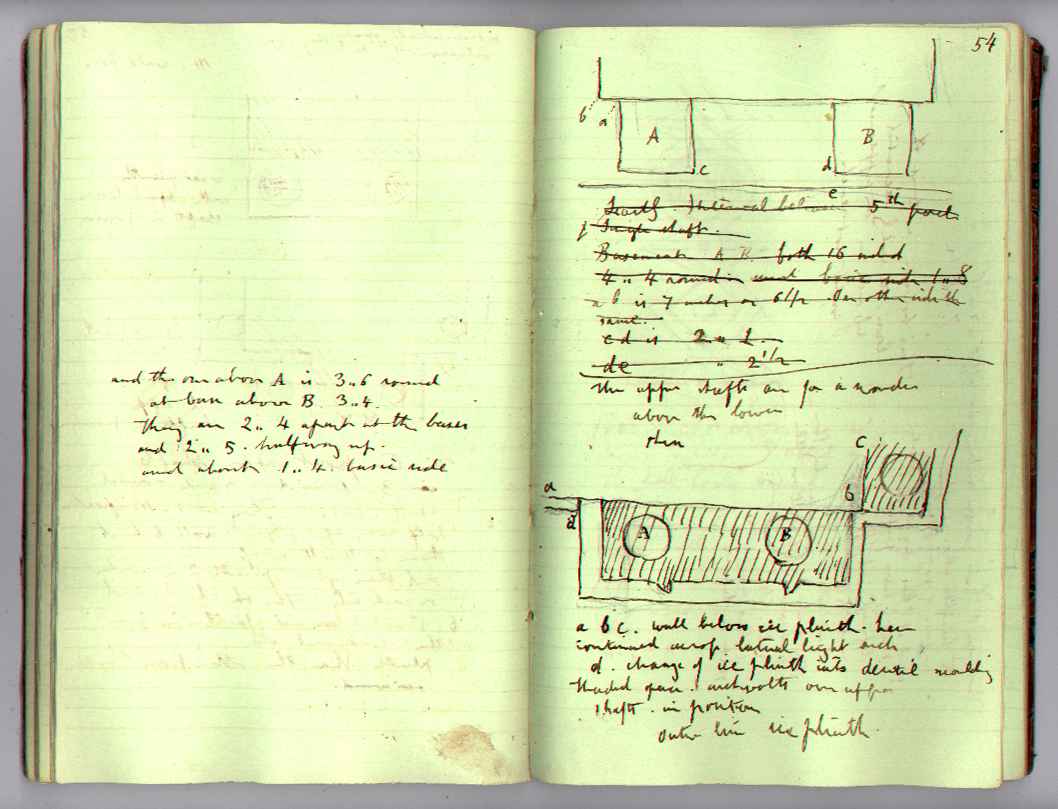 and the one above A is 3..6 round
at base above B. 3..4.
They are 2.. 4 apart at the bases
and 2.. 5. halfway up.
and about 1.. 4. basic side
54
b a A B
c d
e
Interval between 5th part
Single shaft.
Basement A B. both 16
4 .. 4 round. basic side 1..8
a b is 7 inches or 6 1/2 On other side the
same.
c d is 2 .. 1.
de .. 2 1/2
The upper shafts are for a wonder
above the lower
thus
c
a b
d A B
a b c. wall below ice plinth. here
continued across lateral light arch
d. change of ice plinth into dentil moulding
Shaded space. archivolts over upper
shafts. in position
outer line ice plinth.